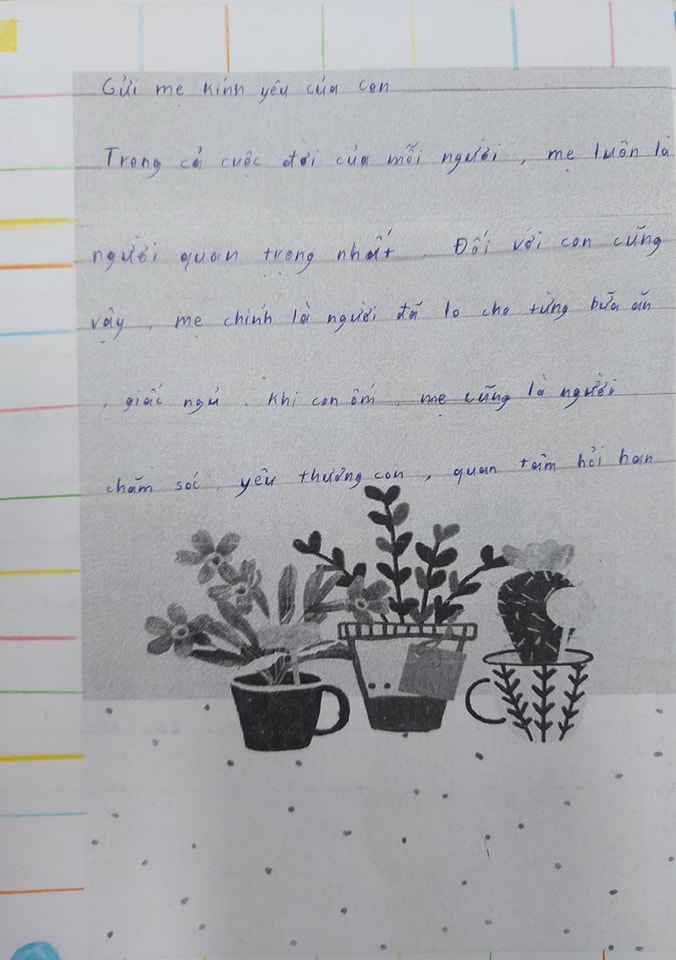 Gửi mẹ kính yêu của con
Trong cả cuộc đời của mỗi người, mẹ luôn là
người quan trọng nhất. Đối với con cũng
vậy, mẹ chính là người đã lo cho từng bữa ăn
, giấc ngủ. Khi con ốm, mẹ cũng là người
chăm sóc, yêu thương con, quan tâm hỏi han